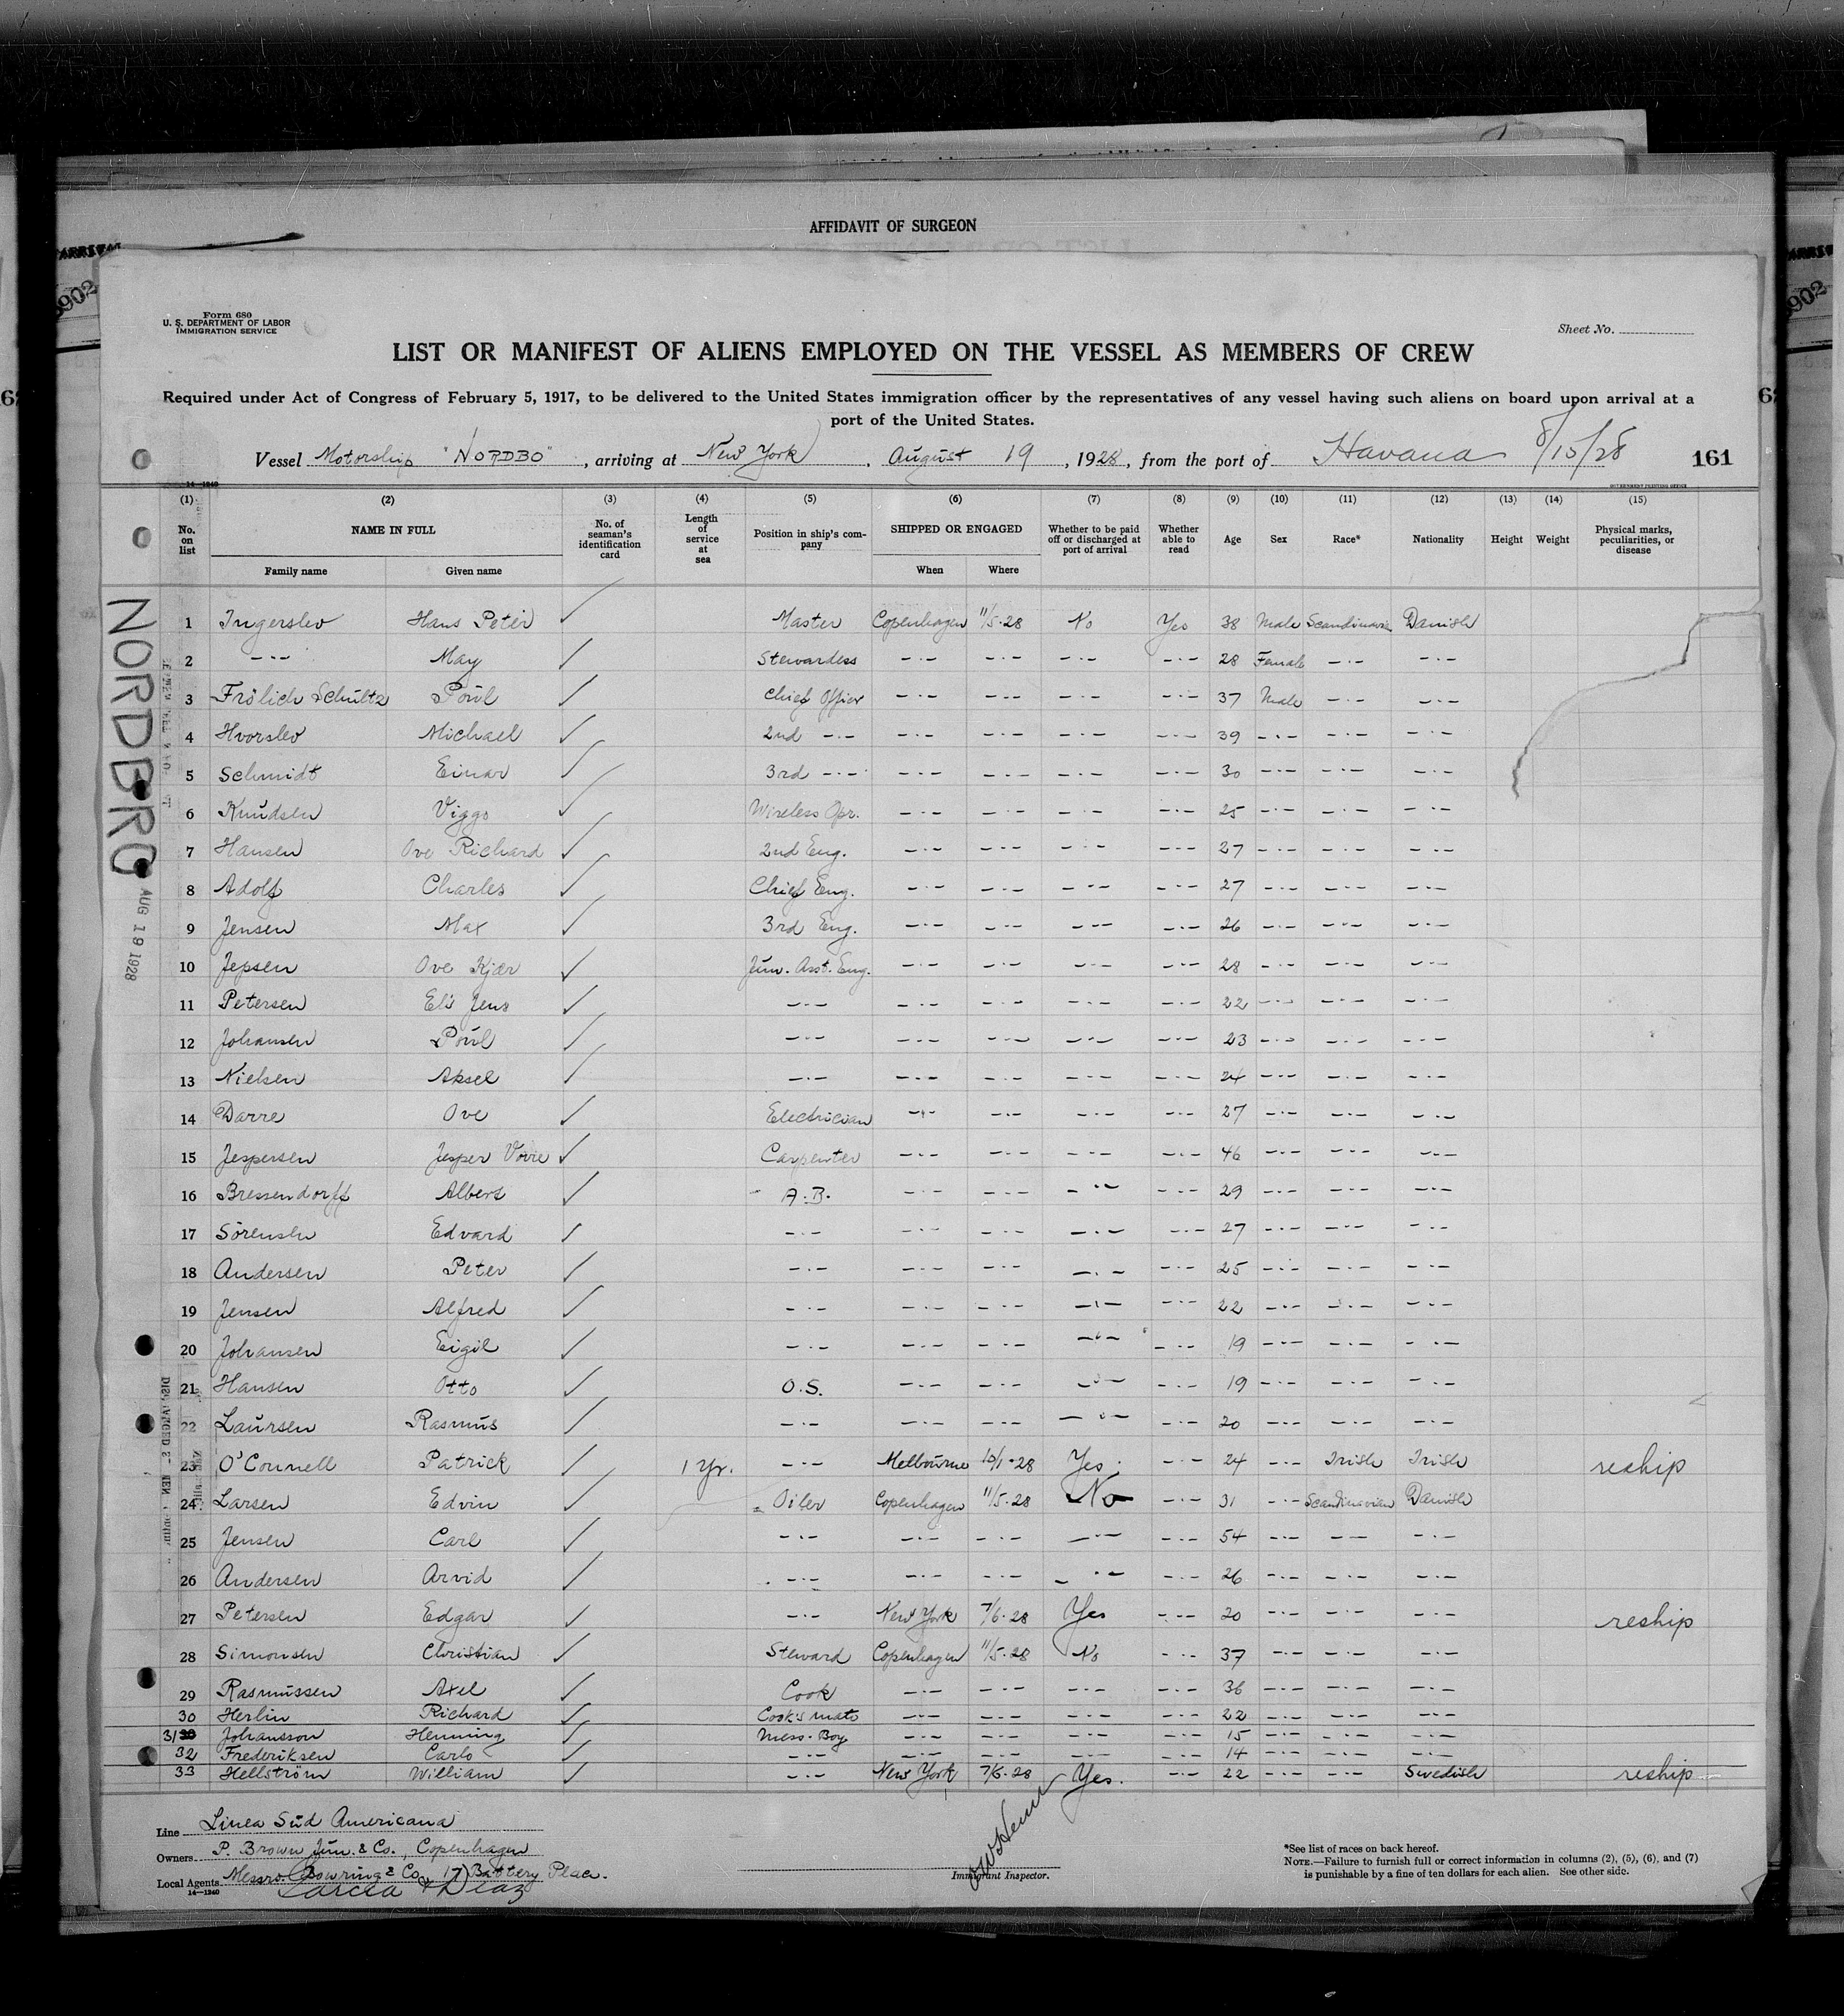 AFFIDAVIT OF SURGEON
Form 680
U. S. DEPARTMENT OF LABOR
IMMIGRATION SERVICE
Sheet No.
LIST OR MANIFEST OF ALIENS EMPLOYED ON THE VESSEL AS MEMBERS OF CREW
Required under Act of Congress of February 5, 1917, to be delivered to the United States immigration officer by the representatives of any vessel having such aliens on board upon arrival at a
port of the United States.
Vessel Motorship "NORDBO", arriving at New York, August 19, 1928, from the port of Havana 8/15/28 161
14—1240 GOVERNMENT PRINTING OFFICE
(1) (2) (3) (4) (5) (6) (7) (8) (9) (10) (11) (12) (13) (14) (15)
No. on list NAME IN FULL Family name Given name No. of seaman's identification card Length of service at sea Position in ship's company SHIPPED OR ENGAGED When Where Whether to be paid off or discharged at port of arrival Whether able to read Age Sex Race* Nationality Height Weight Physical marks, peculiarities, or disease
1 Ingerslev Hans Peter ✓ Master Copenhagen 11/5-28 No Yes 38 Male Scandinavia Danish
2 -"- May ✓ Stewardess -"- -"- -"- -"- 28 Female -"- -"-
3 Frölich Schultz Poul ✓ Chief Officer -"- -"- -"- -"- 37 Male -"- -"-
4 Hvorslev Michael ✓ 2nd -"- -"- -"- -"- -"- 39 -"- -"- -"-
5 Schmidt Einar ✓ 3rd -"- -"- -"- -"- -"- 30 -"- -"- -"-
6 Knudsen Viggo ✓ Wireless Opr. -"- -"- -"- -"- 25 -"- -"- -"-
7 Hansen Ove Richard ✓ 2nd Eng. -"- -"- -"- -"- 27 -"- -"- -"-
8 Adolf Charles ✓ Chief Eng. -"- -"- -"- -"- 27 -"- -"- -"-
9 Jensen Max ✓ 3rd Eng. -"- -"- -"- -"- 26 -"- -"- -"-
10 Jepsen Ove Kjær ✓ Jun. Asst. Eng. -"- -"- -"- -"- 28 -"- -"- -"-
11 Petersen Eli Jens ✓ -"- -"- -"- -"- -"- 22 -"- -"- -"-
12 Johansen Poul ✓ -"- -"- -"- -"- -"- 23 -"- -"- -"-
13 Nielsen Aksel ✓ -"- -"- -"- -"- -"- 24 -"- -"- -"-
14 Darre Ove ✓ Electrician -"- -"- -"- -"- 27 -"- -"- -"-
15 Jespersen Jesper ✓ Carpenter -"- -"- -"- -"- 46 -"- -"- -"-
16 Bressendorff Albert ✓ A.B. -"- -"- -"- -"- 29 -"- -"- -"-
17 Sörensen Edvard ✓ -"- -"- -"- -"- -"- 27 -"- -"- -"-
18 Andersen Peter ✓ -"- -"- -"- -"- -"- 25 -"- -"- -"-
19 Jensen Alfred ✓ -"- -"- -"- -"- -"- 22 -"- -"- -"-
20 Johansen Eigil ✓ -"- -"- -"- -"- -"- 19 -"- -"- -"-
21 Hansen Otto ✓ O.S. -"- -"- -"- -"- 19 -"- -"- -"-
22 Laursen Rasmus ✓ -"- -"- -"- -"- -"- 20 -"- -"- -"-
23 O'Connell Patrick ✓ 1 Yr. -"- Melbourne 10/1-28 Yes -"- 24 -"- Irish Irish reship
24 Larsen Edvin ✓ Oiler Copenhagen 11/5-28 No -"- 31 -"- Scandinavian Danish
25 Jensen Carl ✓ -"- -"- -"- -"- -"- 54 -"- -"- -"-
26 Andersen Arvid ✓ -"- -"- -"- -"- -"- 26 -"- -"- -"-
27 Petersen Edgar ✓ -"- New York 7/6-28 Yes -"- 20 -"- -"- -"- reship
28 Simonsen Christian ✓ Steward Copenhagen 11/5-28 No -"- 37 -"- -"- -"-
29 Rasmussen Axel ✓ Cook -"- -"- -"- -"- 36 -"- -"- -"-
30 Herlin Richard ✓ Cook's mate -"- -"- -"- -"- 22 -"- -"- -"-
31 Johansson Henning ✓ Mess-Boy -"- -"- -"- -"- 15 -"- -"- -"-
32 Frederiksen Carlo ✓ -"- -"- -"- -"- -"- 14 -"- -"- -"-
33 Hellström William ✓ -"- New York 7/6-28 Yes. -"- 22 -"- -"- Swedish reship
NORDBRO
AUG 19 1928
Line Linea Sud Americana
Owners P. Brown Jun. & Co., Copenhagen
Local Agents Messrs. Bowring & Co. 17 Battery Place.
Garcia & Diaz
14—1240
Immigrant Inspector.
*See list of races on back hereof.
NOTE.—Failure to furnish full or correct information in columns (2), (5), (6), and (7)
is punishable by a fine of ten dollars for each alien. See other side.